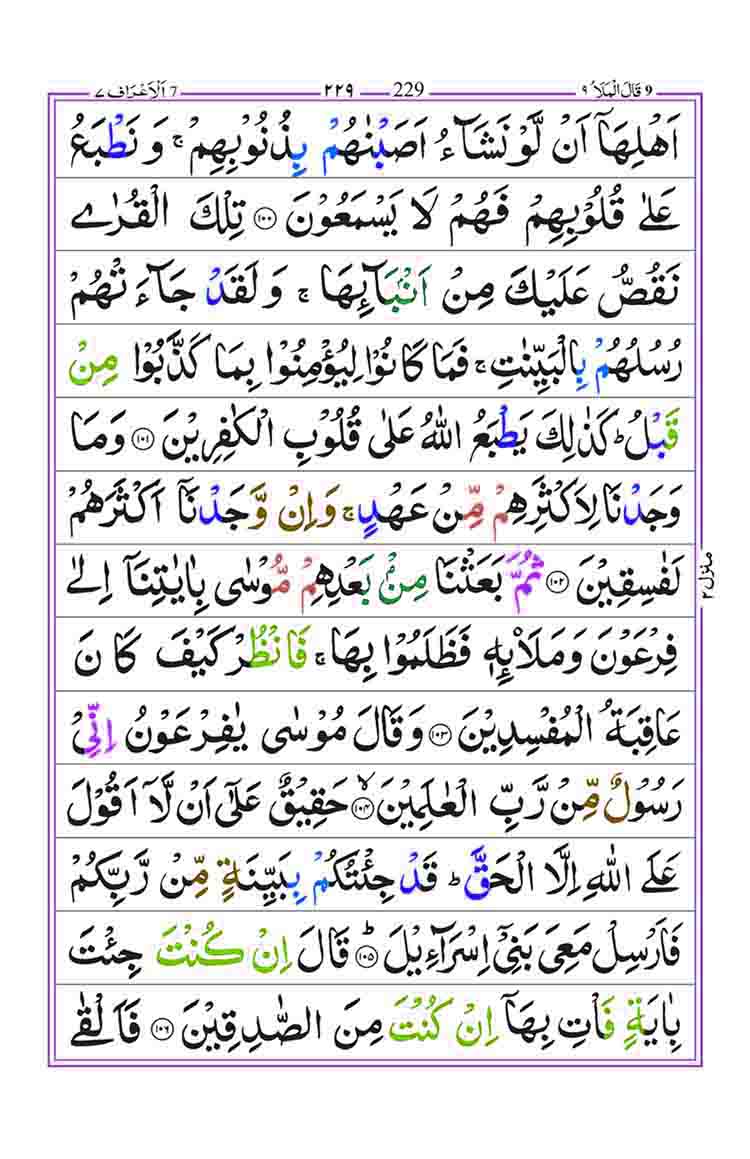 9 قَالَ الْمَلَاُ ٩ 229 ٢٢٩ 7 اَلْاَعْرَاف ٧
اَهْلِهَاۤ اَنْ لَّوْ نَشَآءُ اَصَبْنٰهُمْ بِذُنُوْبِهِمْ ۚ وَ نَطْبَعُ
عَلٰى قُلُوْبِهِمْ فَهُمْ لَا يَسْمَعُوْنَ ۝۱۰۰ تِلْكَ الْقُرٰى
نَقُصُّ عَلَيْكَ مِنْ اَنْۢبَآئِهَا ۚ وَ لَقَدْ جَآءَتْهُمْ
رُسُلُهُمْ بِالْبَيِّنٰتِ ۚ فَمَا كَانُوْا لِيُؤْمِنُوْا بِمَا كَذَّبُوْا مِنْ
قَبْلُ ؕ كَذٰلِكَ يَطْبَعُ اللّٰهُ عَلٰى قُلُوْبِ الْكٰفِرِيْنَ ۝۱۰۱ وَمَا
وَجَدْنَا لِاَكْثَرِهِمْ مِّنْ عَهْدٍ ۚ وَاِنْ وَّجَدْنَاۤ اَكْثَرَهُمْ
لَفٰسِقِيْنَ ۝۱۰۲ ثُمَّ بَعَثْنَا مِنْۢ بَعْدِهِمْ مُّوْسٰى بِاٰيٰتِنَاۤ اِلٰى
فِرْعَوْنَ وَمَلَا۟ئِهٖ فَظَلَمُوْا بِهَا ۚ فَانْظُرْ كَيْفَ كَانَ
عَاقِبَةُ الْمُفْسِدِيْنَ ۝۱۰۳ وَقَالَ مُوْسٰى يٰفِرْعَوْنُ اِنِّىْ
رَسُوْلٌ مِّنْ رَّبِّ الْعٰلَمِيْنَ ۙ۝۱۰۴ حَقِيْقٌ عَلٰۤى اَنْ لَّاۤ اَقُوْلَ
عَلَى اللّٰهِ اِلَّا الْحَقَّ ؕ قَدْ جِئْتُكُمْ بِبَيِّنَةٍ مِّنْ رَّبِّكُمْ
فَاَرْسِلْ مَعِىَ بَنِىْۤ اِسْرَآءِيْلَ ؕ۝۱۰۵ قَالَ اِنْ كُنْتَ جِئْتَ
بِاٰيَةٍ فَاْتِ بِهَاۤ اِنْ كُنْتَ مِنَ الصّٰدِقِيْنَ ۝۱۰۶ فَاَلْقٰى
منزل ٢